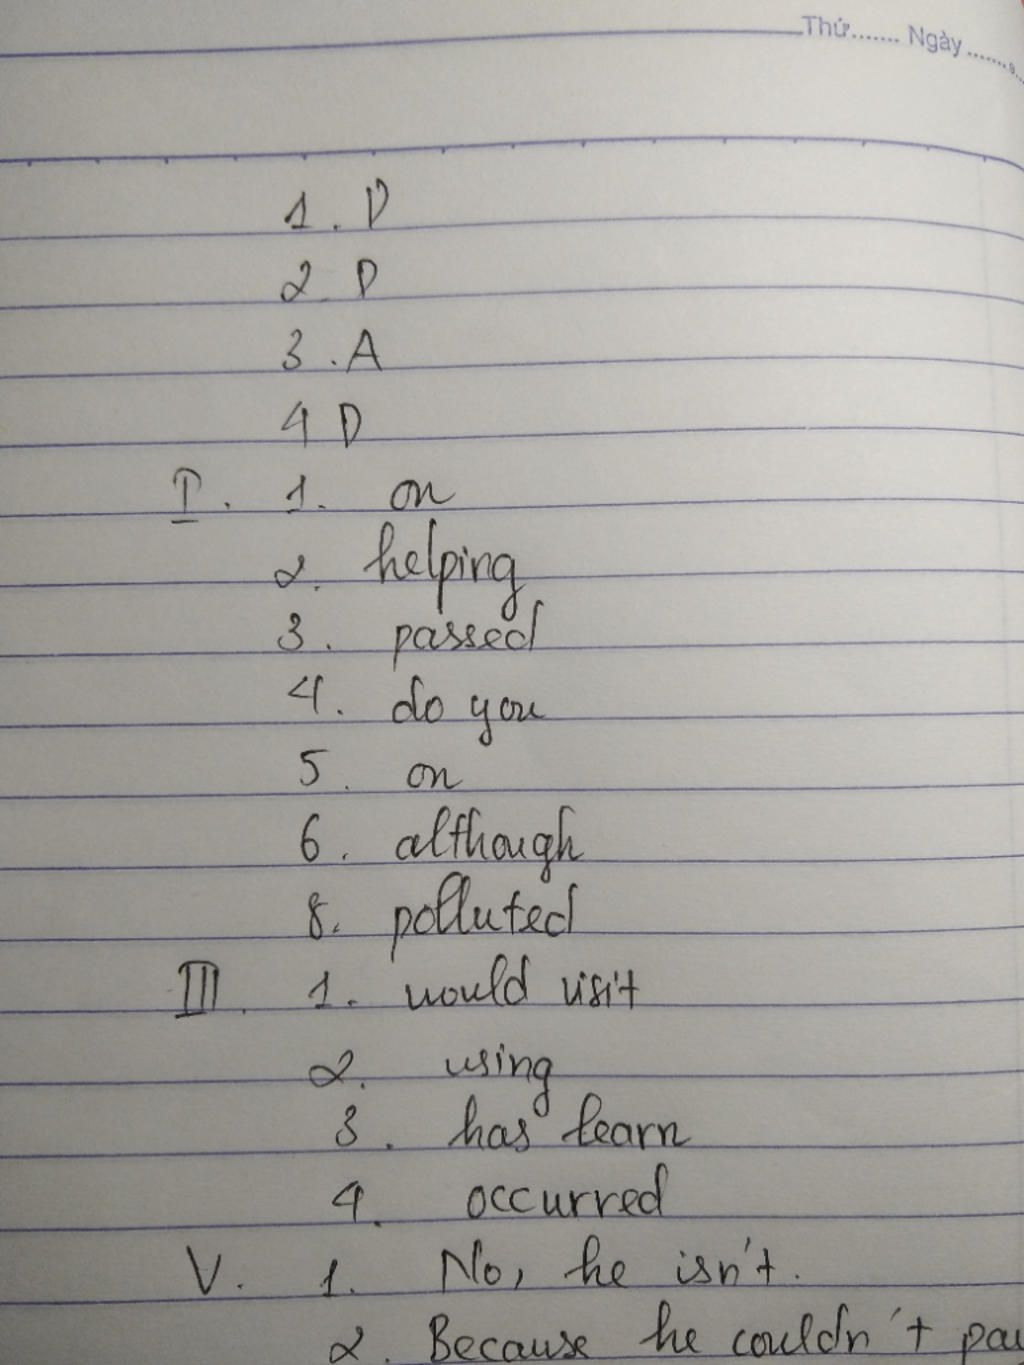 Thứ....... Ngày .......
1. D
2. D
3. A
4 D
I. 1. on
2. helping
3. passed
4. do you
5. on
6. although
8. polluted
III. 1. would visit
2. using
3. has learn
4. occurred
V. 1. No, he isn't.
2. Because he couldn't